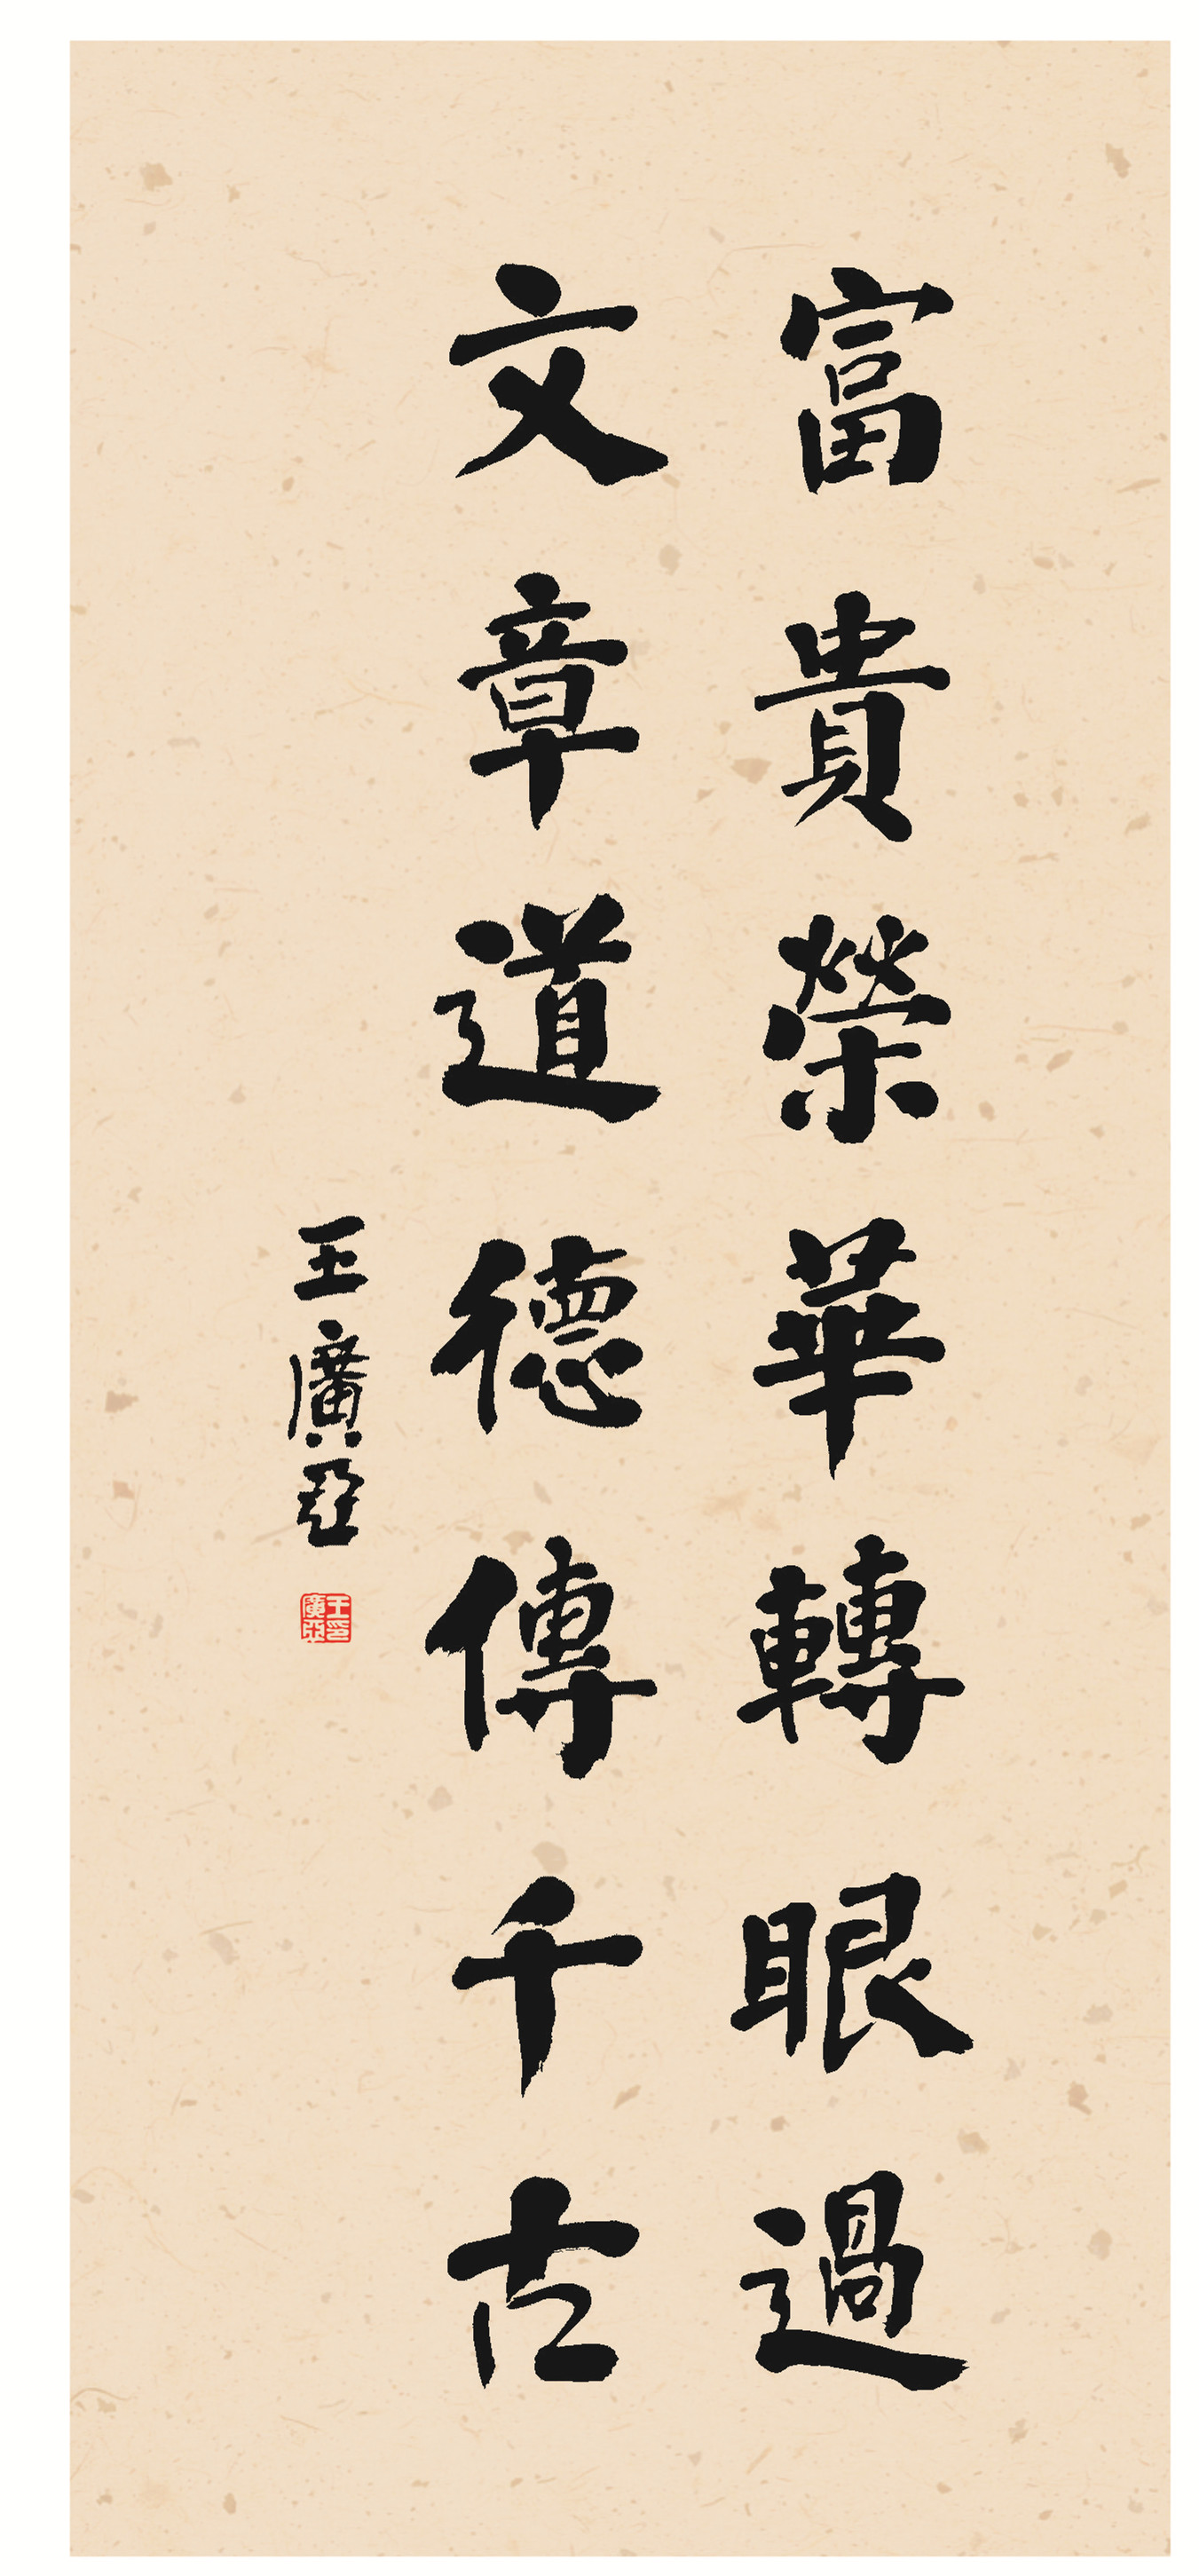 富貴榮華轉眼過
文章道德傳千古
王廣亞
王廣亞印